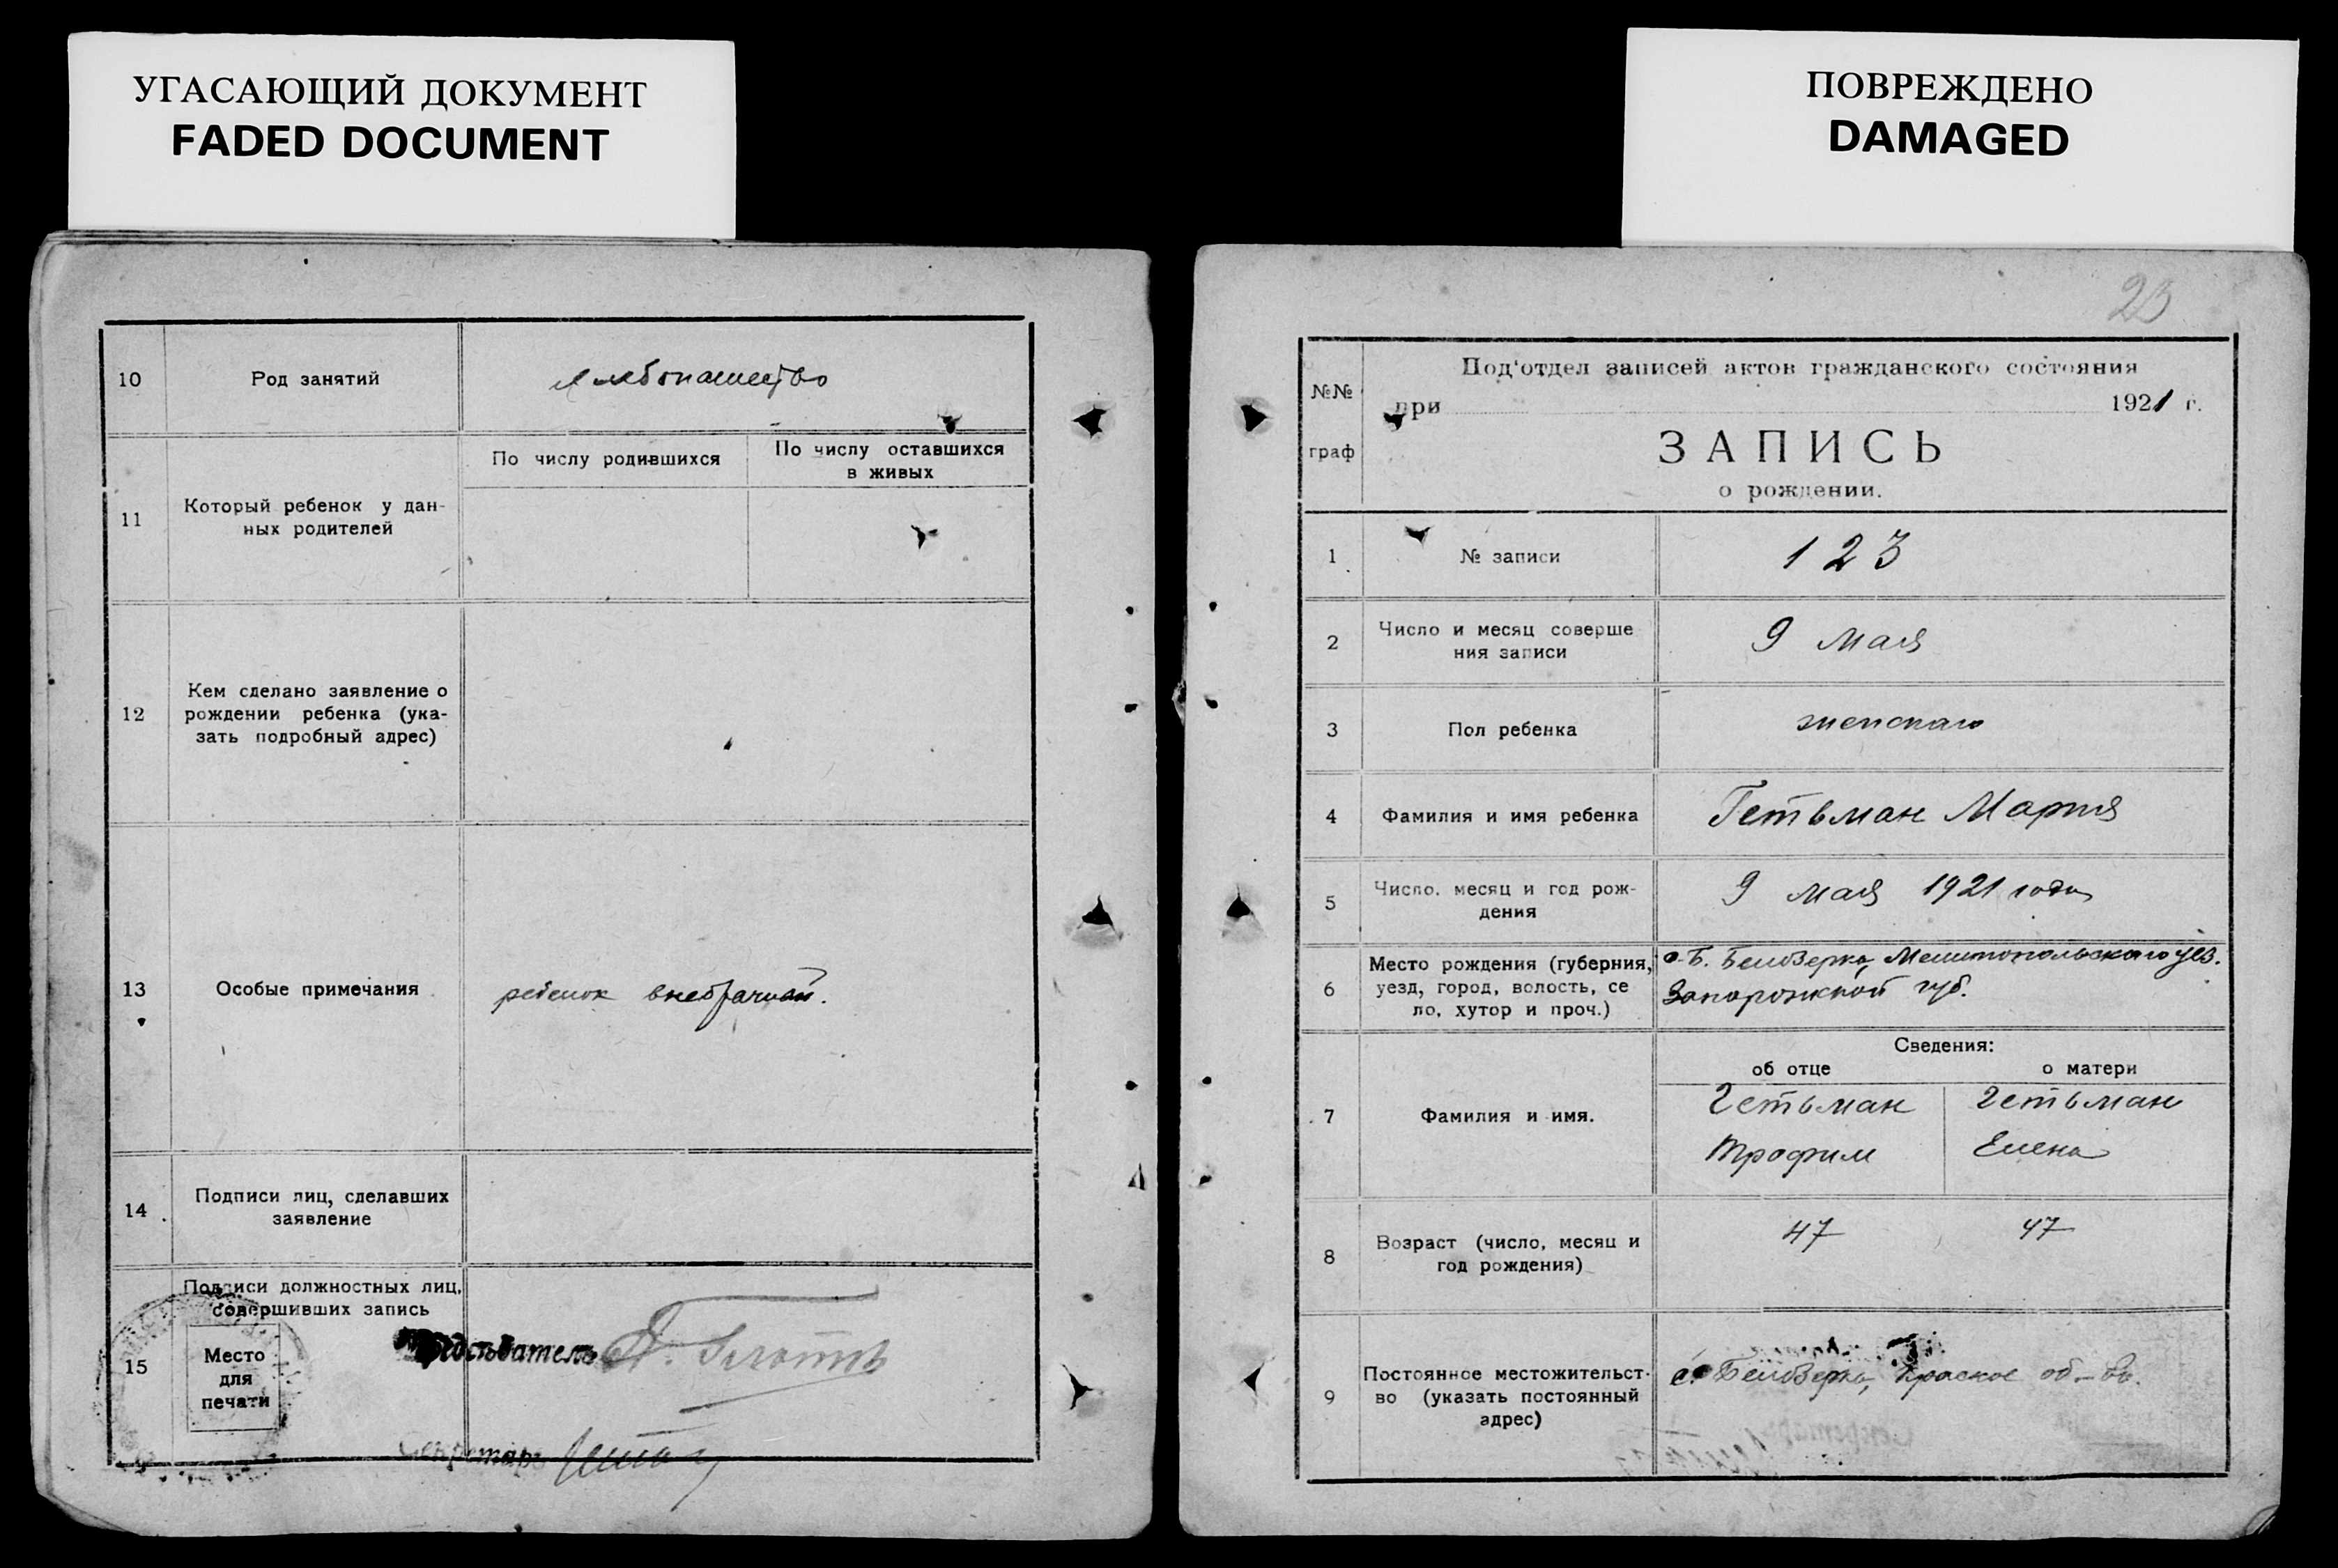 УГАСАЮЩИЙ ДОКУМЕНТ
FADED DOCUMENT
ПОВРЕЖДЕНО
DAMAGED
10
Род занятий
хлебопашество
11
Который ребенок у дан-
ных родителей
По числу родившихся
По числу оставшихся
в живых
12
Кем сделано заявление о
рождении ребенка (ука-
зать подробный адрес)
13
Особые примечания
ребенок внебрачный.
14
Подписи лиц, сделавших
заявление
15
Подписи должностных лиц,
совершивших запись
Место
для
печати
Председатель
Секретарь
23
№№
граф
Под'отдел записей актов гражданского состояния
при 1921 г.
ЗАПИСЬ
о рождении.
1
№ записи
123
2
Число и месяц соверше
ния записи
9 Мая
3
Пол ребенка
женскаго
4
Фамилия и имя ребенка
Гетьман Мария
5
Число. месяц и год рож-
дения
9 мая 1921 года
6
Место рождения (губерния,
уезд, город, волость, се
ло, хутор и проч.)
с. Б. Белозерка, Мелитопольскаго уез.
Запорожской губ.
7
Фамилия и имя.
Сведения:
об отце
о матери
Гетьман
Трофим
Гетьман
Елена
8
Возраст (число, месяц и
год рождения)
47
47
9
Постоянное местожительст-
во (указать постоянный
адрес)
с. Белозерка, Красное об-во.